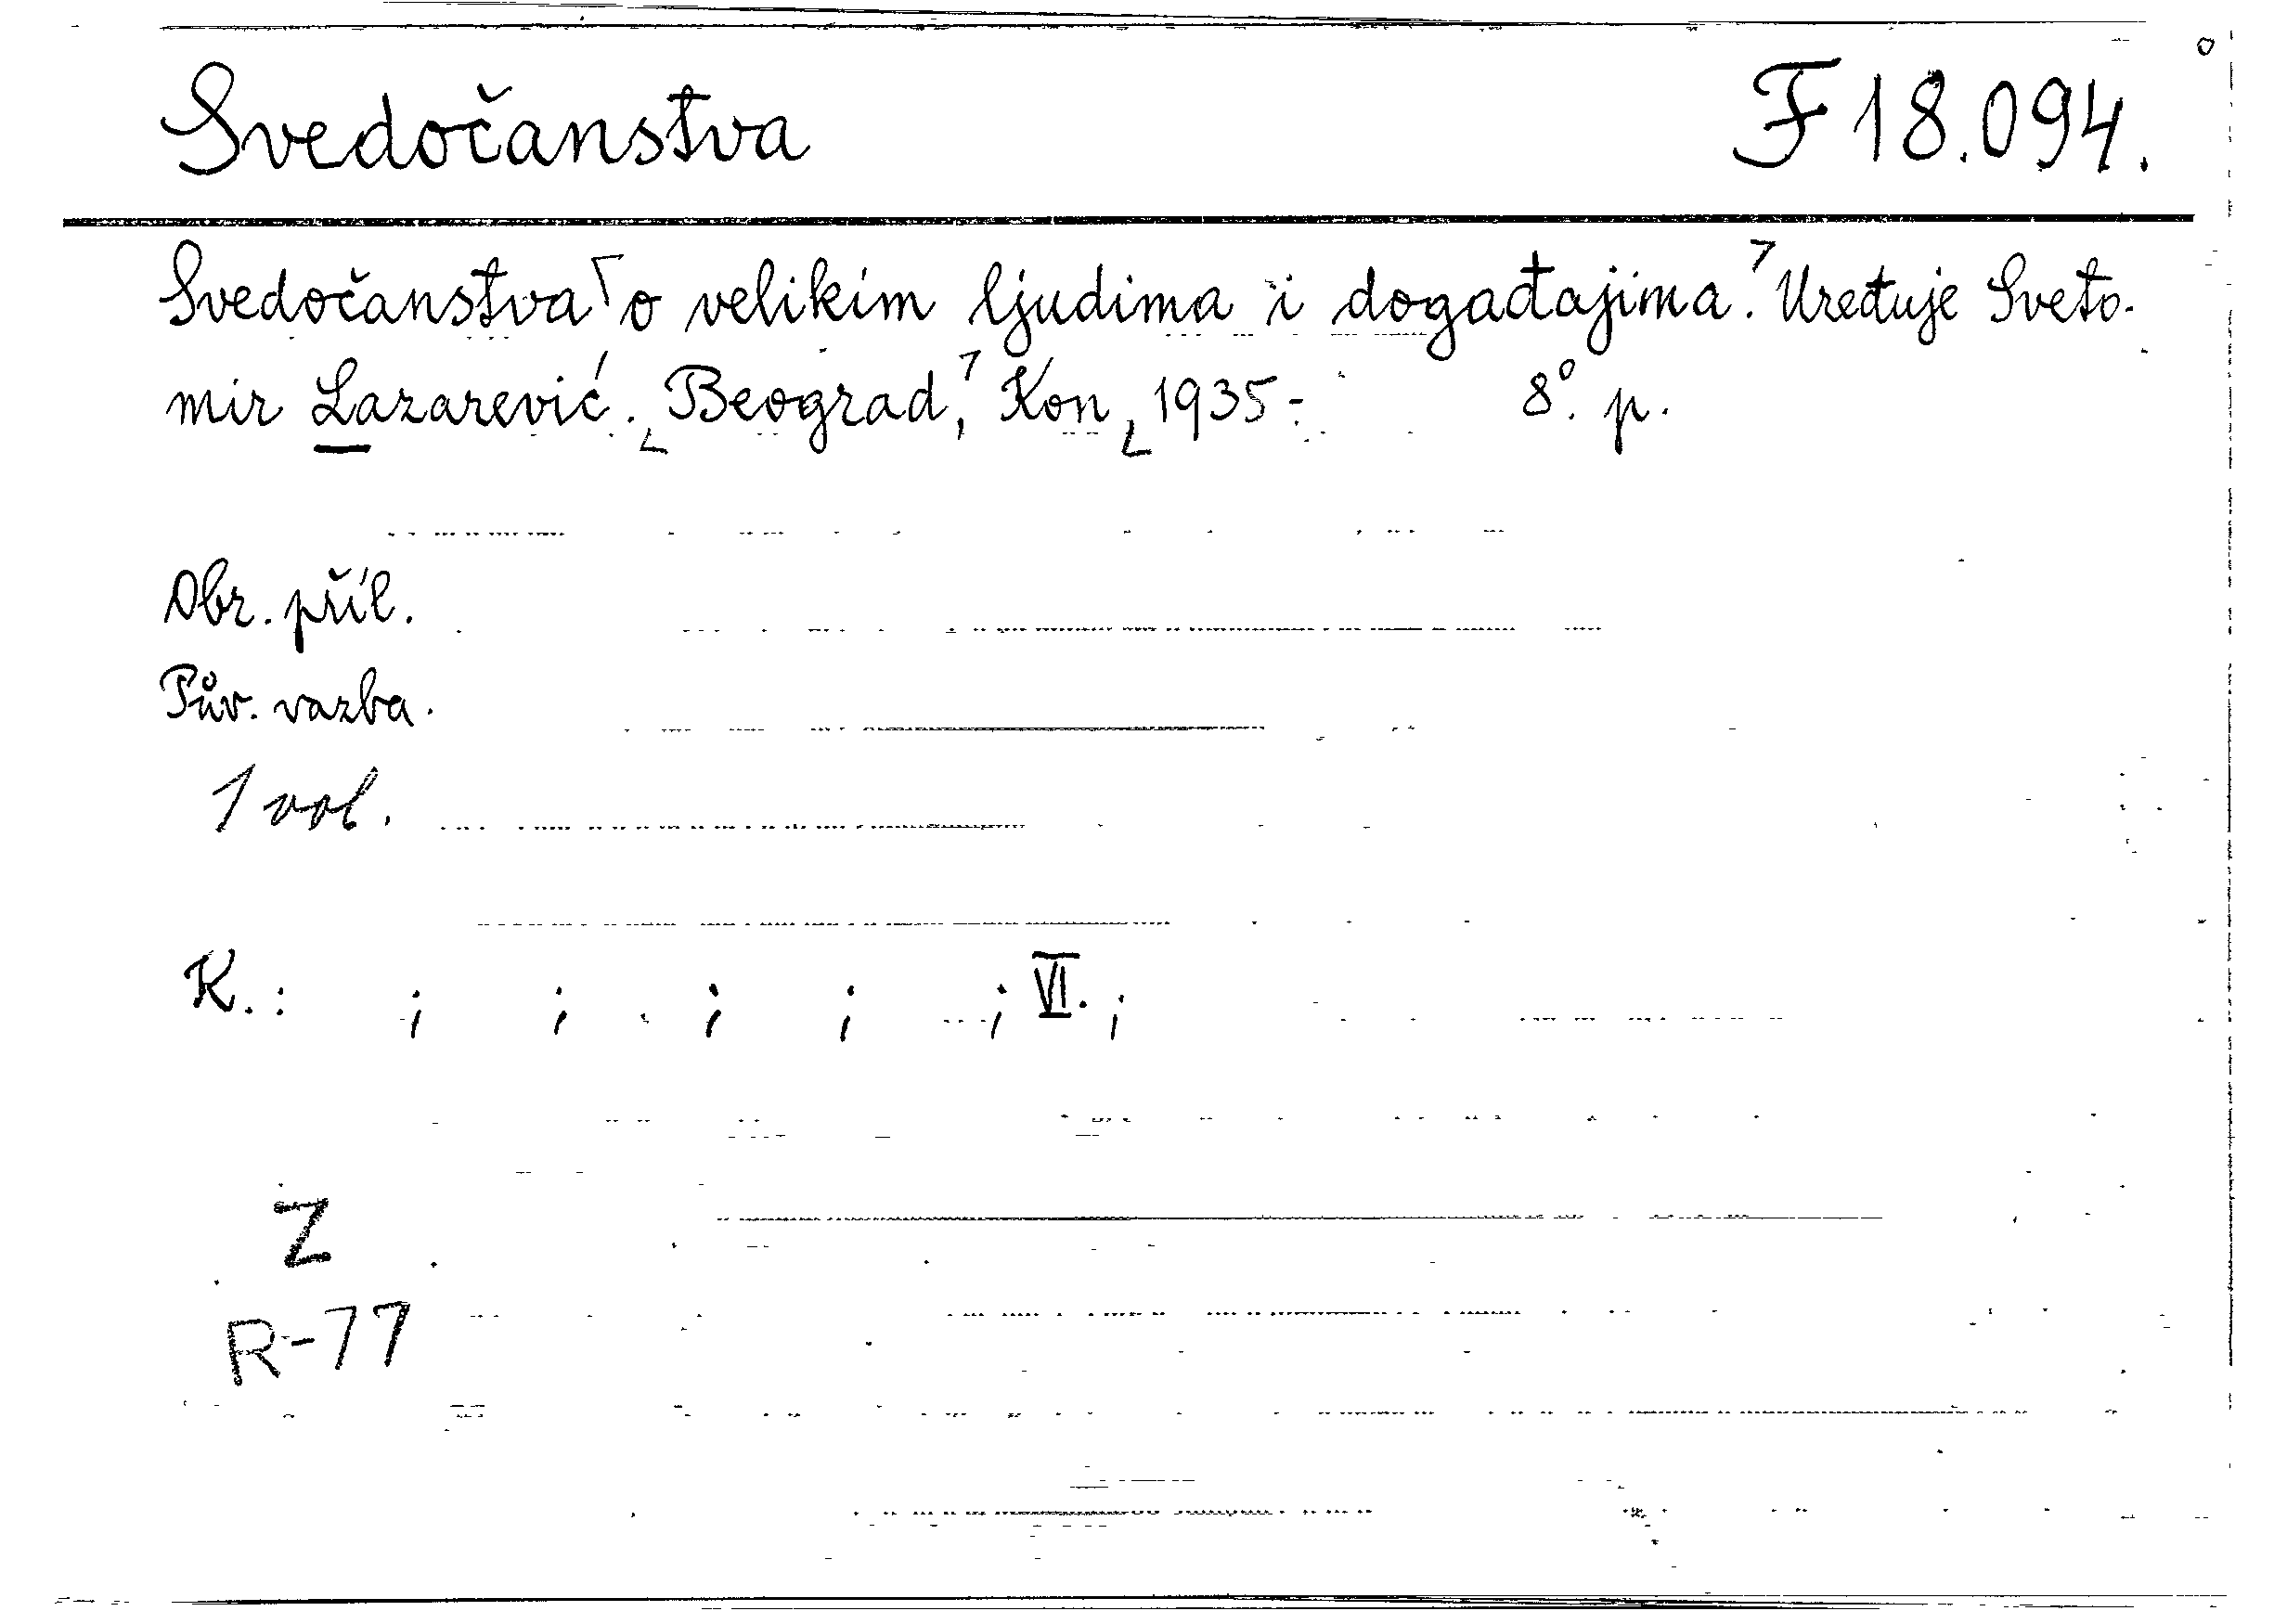 Svedočanstva F 18.094.
Svedočanstva ⌈o velikim ljudima i događajima.⌉ Uređuje Sveto-
mir Lazarević. ⌊Beograd,⌉ Kon ⌊1935- 8°. p.
Obr. příl.
Pův. vazba.
1 vol.
K.: ; ; ; ; ; VI. ;
Z
R-77